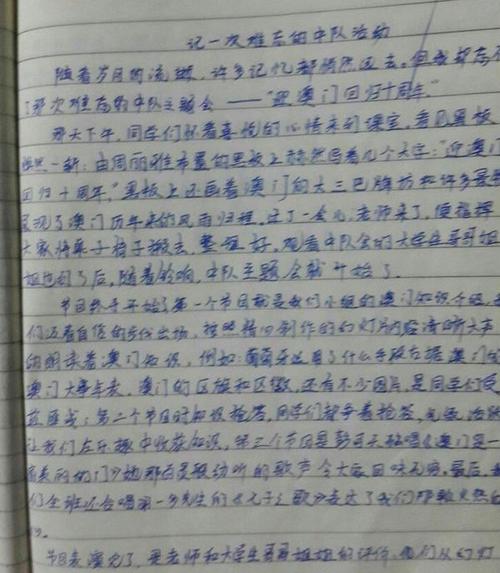 记一次难忘的中队活动
随着岁月的流逝，许多记忆都悄然逝去。但我却忘不
了那次难忘的中队主题会——“迎澳门回归十周年”
那天下午，同学们怀着喜悦的心情来到课室，看见黑板
焕然一新：由周丽雅布置的黑板上赫然写着几个大字：“迎澳门
回归十周年。”黑板上还画着澳门的大三巴牌坊和许多
呈现了澳门历年来的风雨归程。过了一会儿，老师来了，便指挥
大家将桌子椅子搬去，整理好。观看中队会的大学生哥哥姐
姐也到了后，随着铃响，中队主题会就开始了。
节目终于开始了，第一个节目就是我们小组的澳门知识介绍，
们迈着自信的步伐出场，按照 制作的幻灯片内容清晰大声
的朗读着澳门知识，例如：葡萄牙运用了什么手段占据澳门
澳门大事年表，澳门的区旗和区徽，还有不少图片，是同学们
第二个节目时知识抢答，同学们都争着抢答，气氛
让我们在乐趣中收获知识，第三个节目是 《澳门是一
的门》她那百灵般动听的歌声令大家回味无穷，最后，我
们全班还合唱闻一多先生的《七子之歌》表达了我们那般火热的
节目表演完了，是老师和大学生哥哥姐姐的评价，他们从幻灯